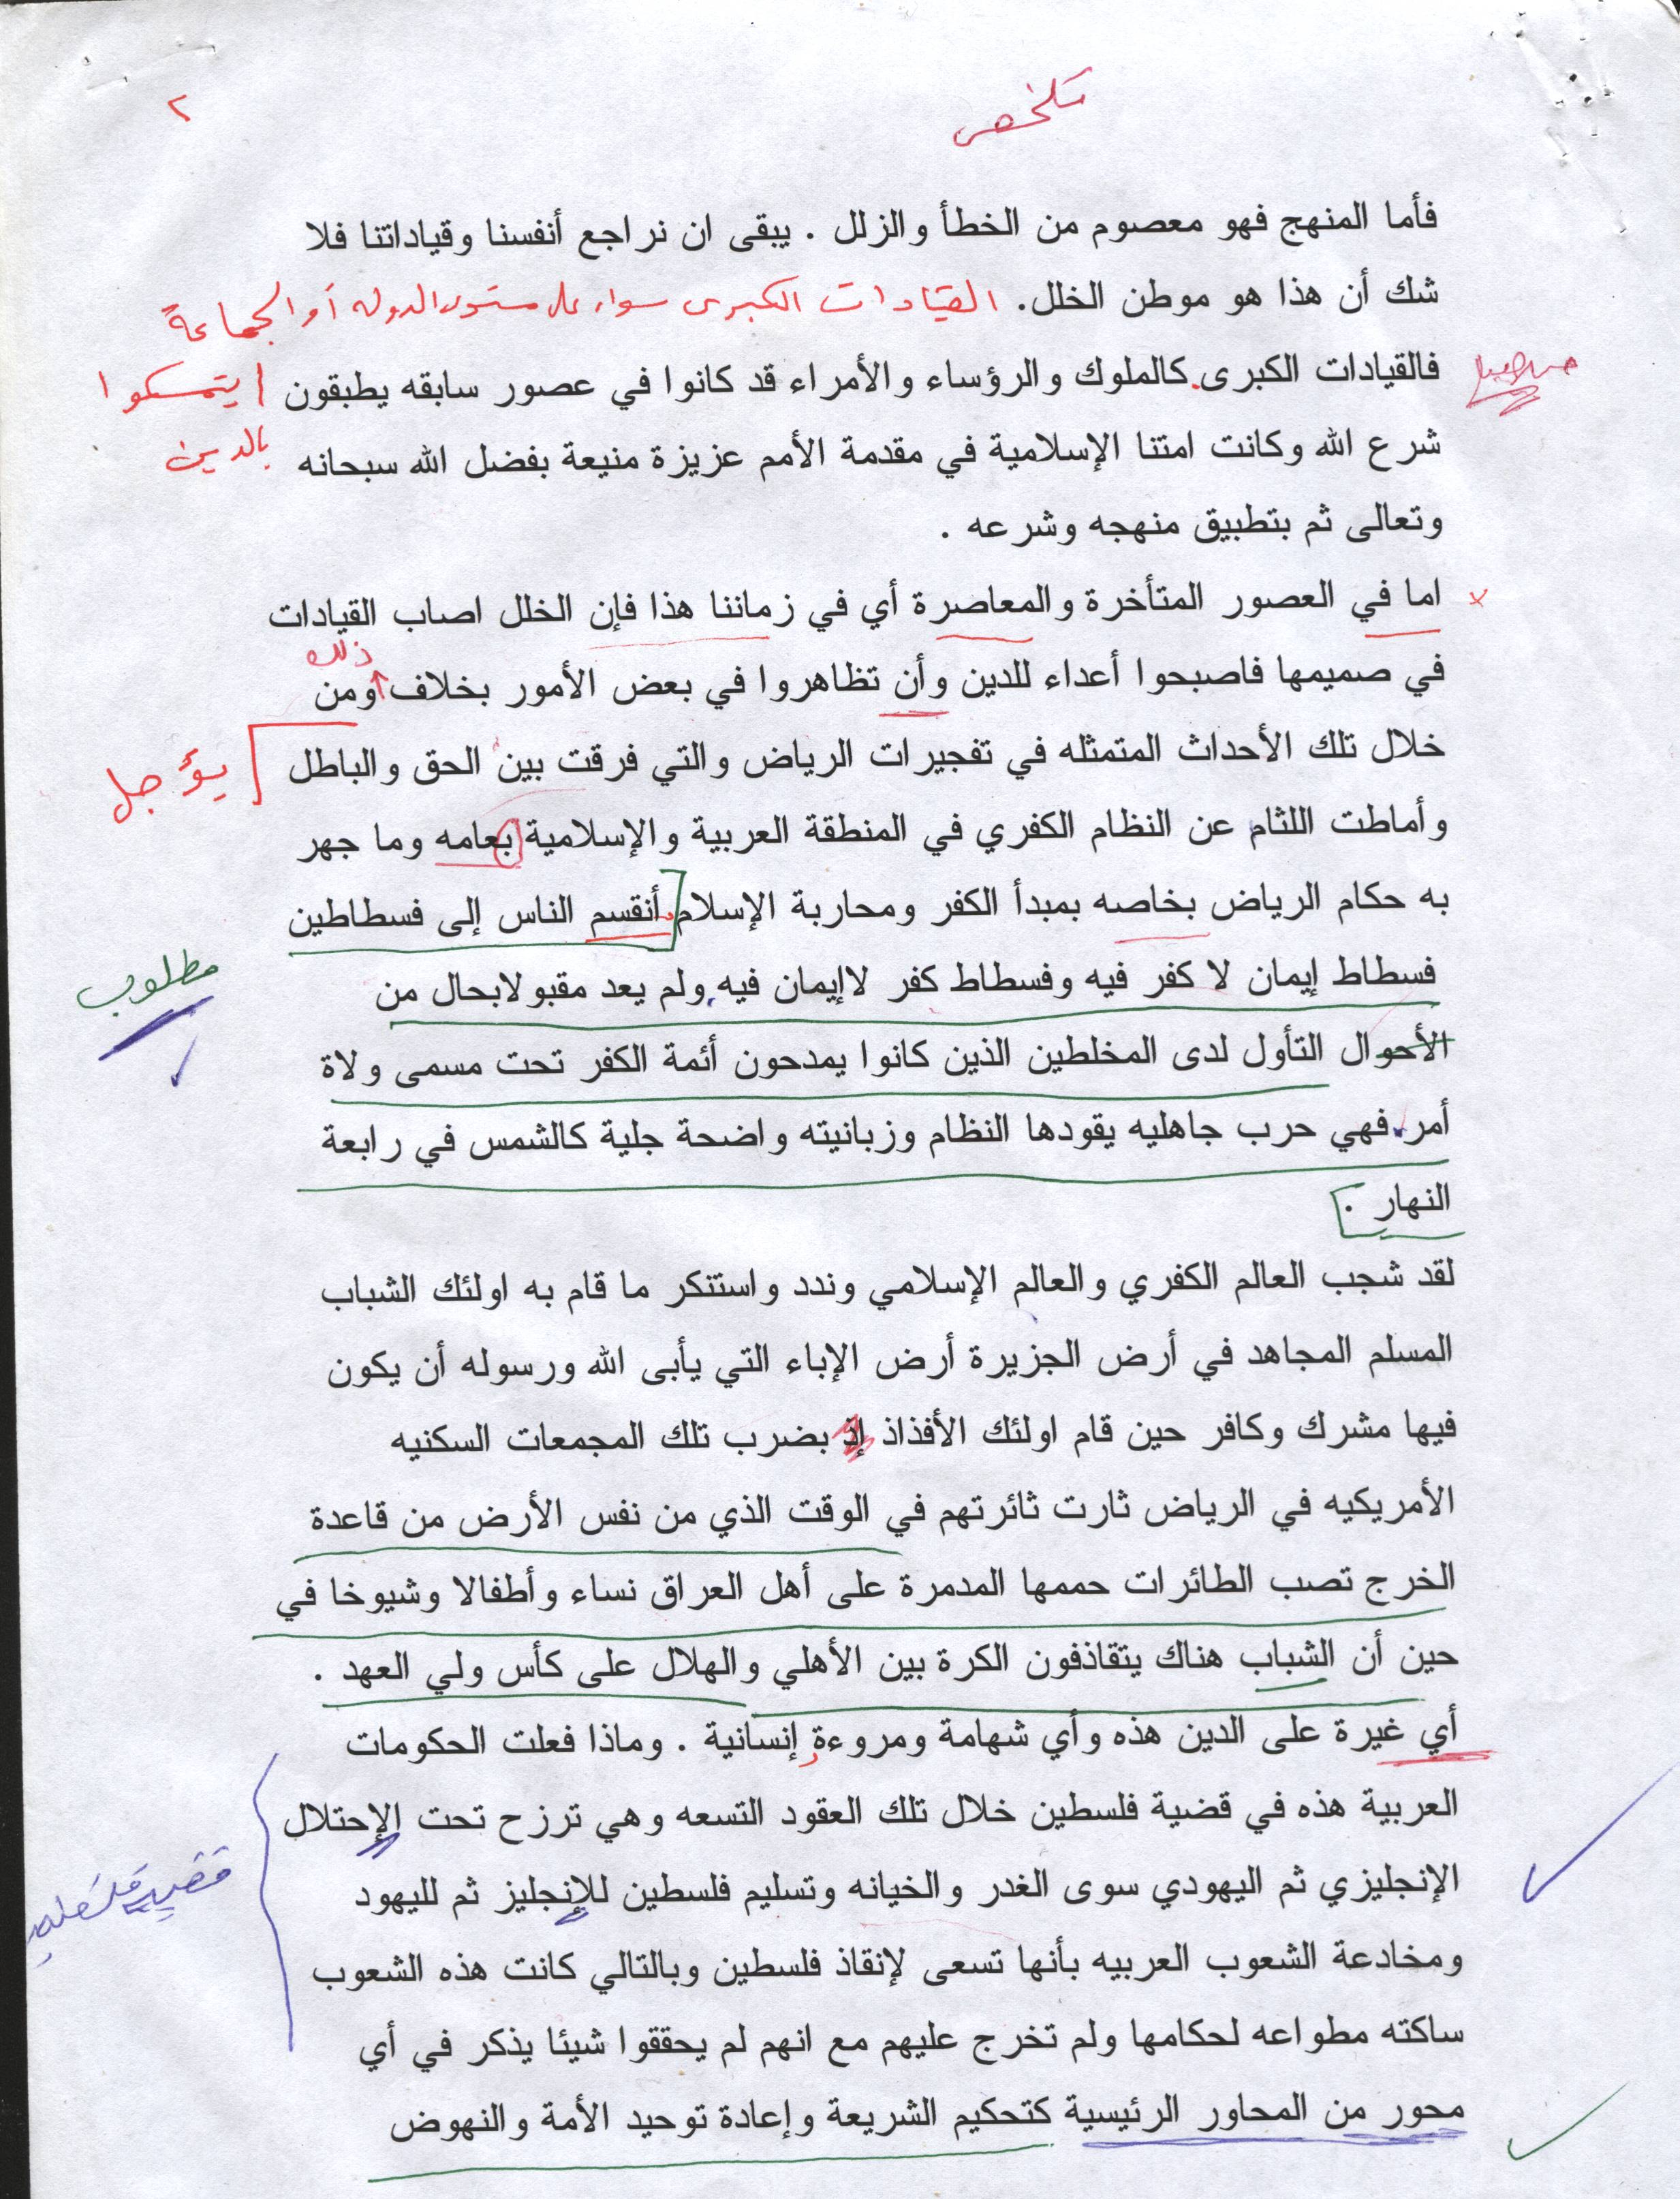 ٢
تلخص
فأما المنهج فهو معصوم من الخطأ والزلل . يبقى ان نراجع أنفسنا وقياداتنا فلا
شك أن هذا هو موطن الخلل. القيادات الكبرى سواء على مستوى الدوله أو الجماعة
فالقيادات الكبرى كالملوك والرؤساء والأمراء قد كانوا في عصور سابقه يطبقون يتمسكوا
شرع الله وكانت امتنا الإسلامية في مقدمة الأمم عزيزة منيعة بفضل الله سبحانه بالدين
وتعالى ثم بتطبيق منهجه وشرعه .
اما في العصور المتأخرة والمعاصرة أي في زماننا هذا فإن الخلل اصاب القيادات
في صميمها فاصبحوا أعداء للدين وأن تظاهروا في بعض الأمور بخلاف ذلك ومن
خلال تلك الأحداث المتمثله في تفجيرات الرياض والتي فرقت بين الحق والباطل يؤجل
وأماطت اللثام عن النظام الكفري في المنطقة العربية والإسلامية بعامه وما جهر
به حكام الرياض بخاصه بمبدأ الكفر ومحاربة الإسلام أنقسم الناس إلى فسطاطين
فسطاط إيمان لا كفر فيه وفسطاط كفر لاإيمان فيه ولم يعد مقبولابحال من مطلوب
الأحوال التأول لدى المخلطين الذين كانوا يمدحون أئمة الكفر تحت مسمى ولاة
أمر فهي حرب جاهليه يقودها النظام وزبانيته واضحة جلية كالشمس في رابعة
النهار .
لقد شجب العالم الكفري والعالم الإسلامي وندد واستنكر ما قام به اولئك الشباب
المسلم المجاهد في أرض الجزيرة أرض الإباء التي يأبى الله ورسوله أن يكون
فيها مشرك وكافر حين قام اولئك الأفذاذ إذ بضرب تلك المجمعات السكنيه
الأمريكيه في الرياض ثارت ثائرتهم في الوقت الذي من نفس الأرض من قاعدة
الخرج تصب الطائرات حممها المدمرة على أهل العراق نساء وأطفالا وشيوخا في
حين أن الشباب هناك يتقاذفون الكرة بين الأهلي والهلال على كأس ولي العهد .
أي غيرة على الدين هذه وأي شهامة ومروءة إنسانية . وماذا فعلت الحكومات
العربية هذه في قضية فلسطين خلال تلك العقود التسعه وهي ترزح تحت الإحتلال
الإنجليزي ثم اليهودي سوى الغدر والخيانه وتسليم فلسطين للإنجليز ثم لليهود قضية فلسطين
ومخادعة الشعوب العربيه بأنها تسعى لإنقاذ فلسطين وبالتالي كانت هذه الشعوب
ساكته مطواعه لحكامها ولم تخرج عليهم مع انهم لم يحققوا شيئا يذكر في أي
محور من المحاور الرئيسية كتحكيم الشريعة وإعادة توحيد الأمة والنهوض